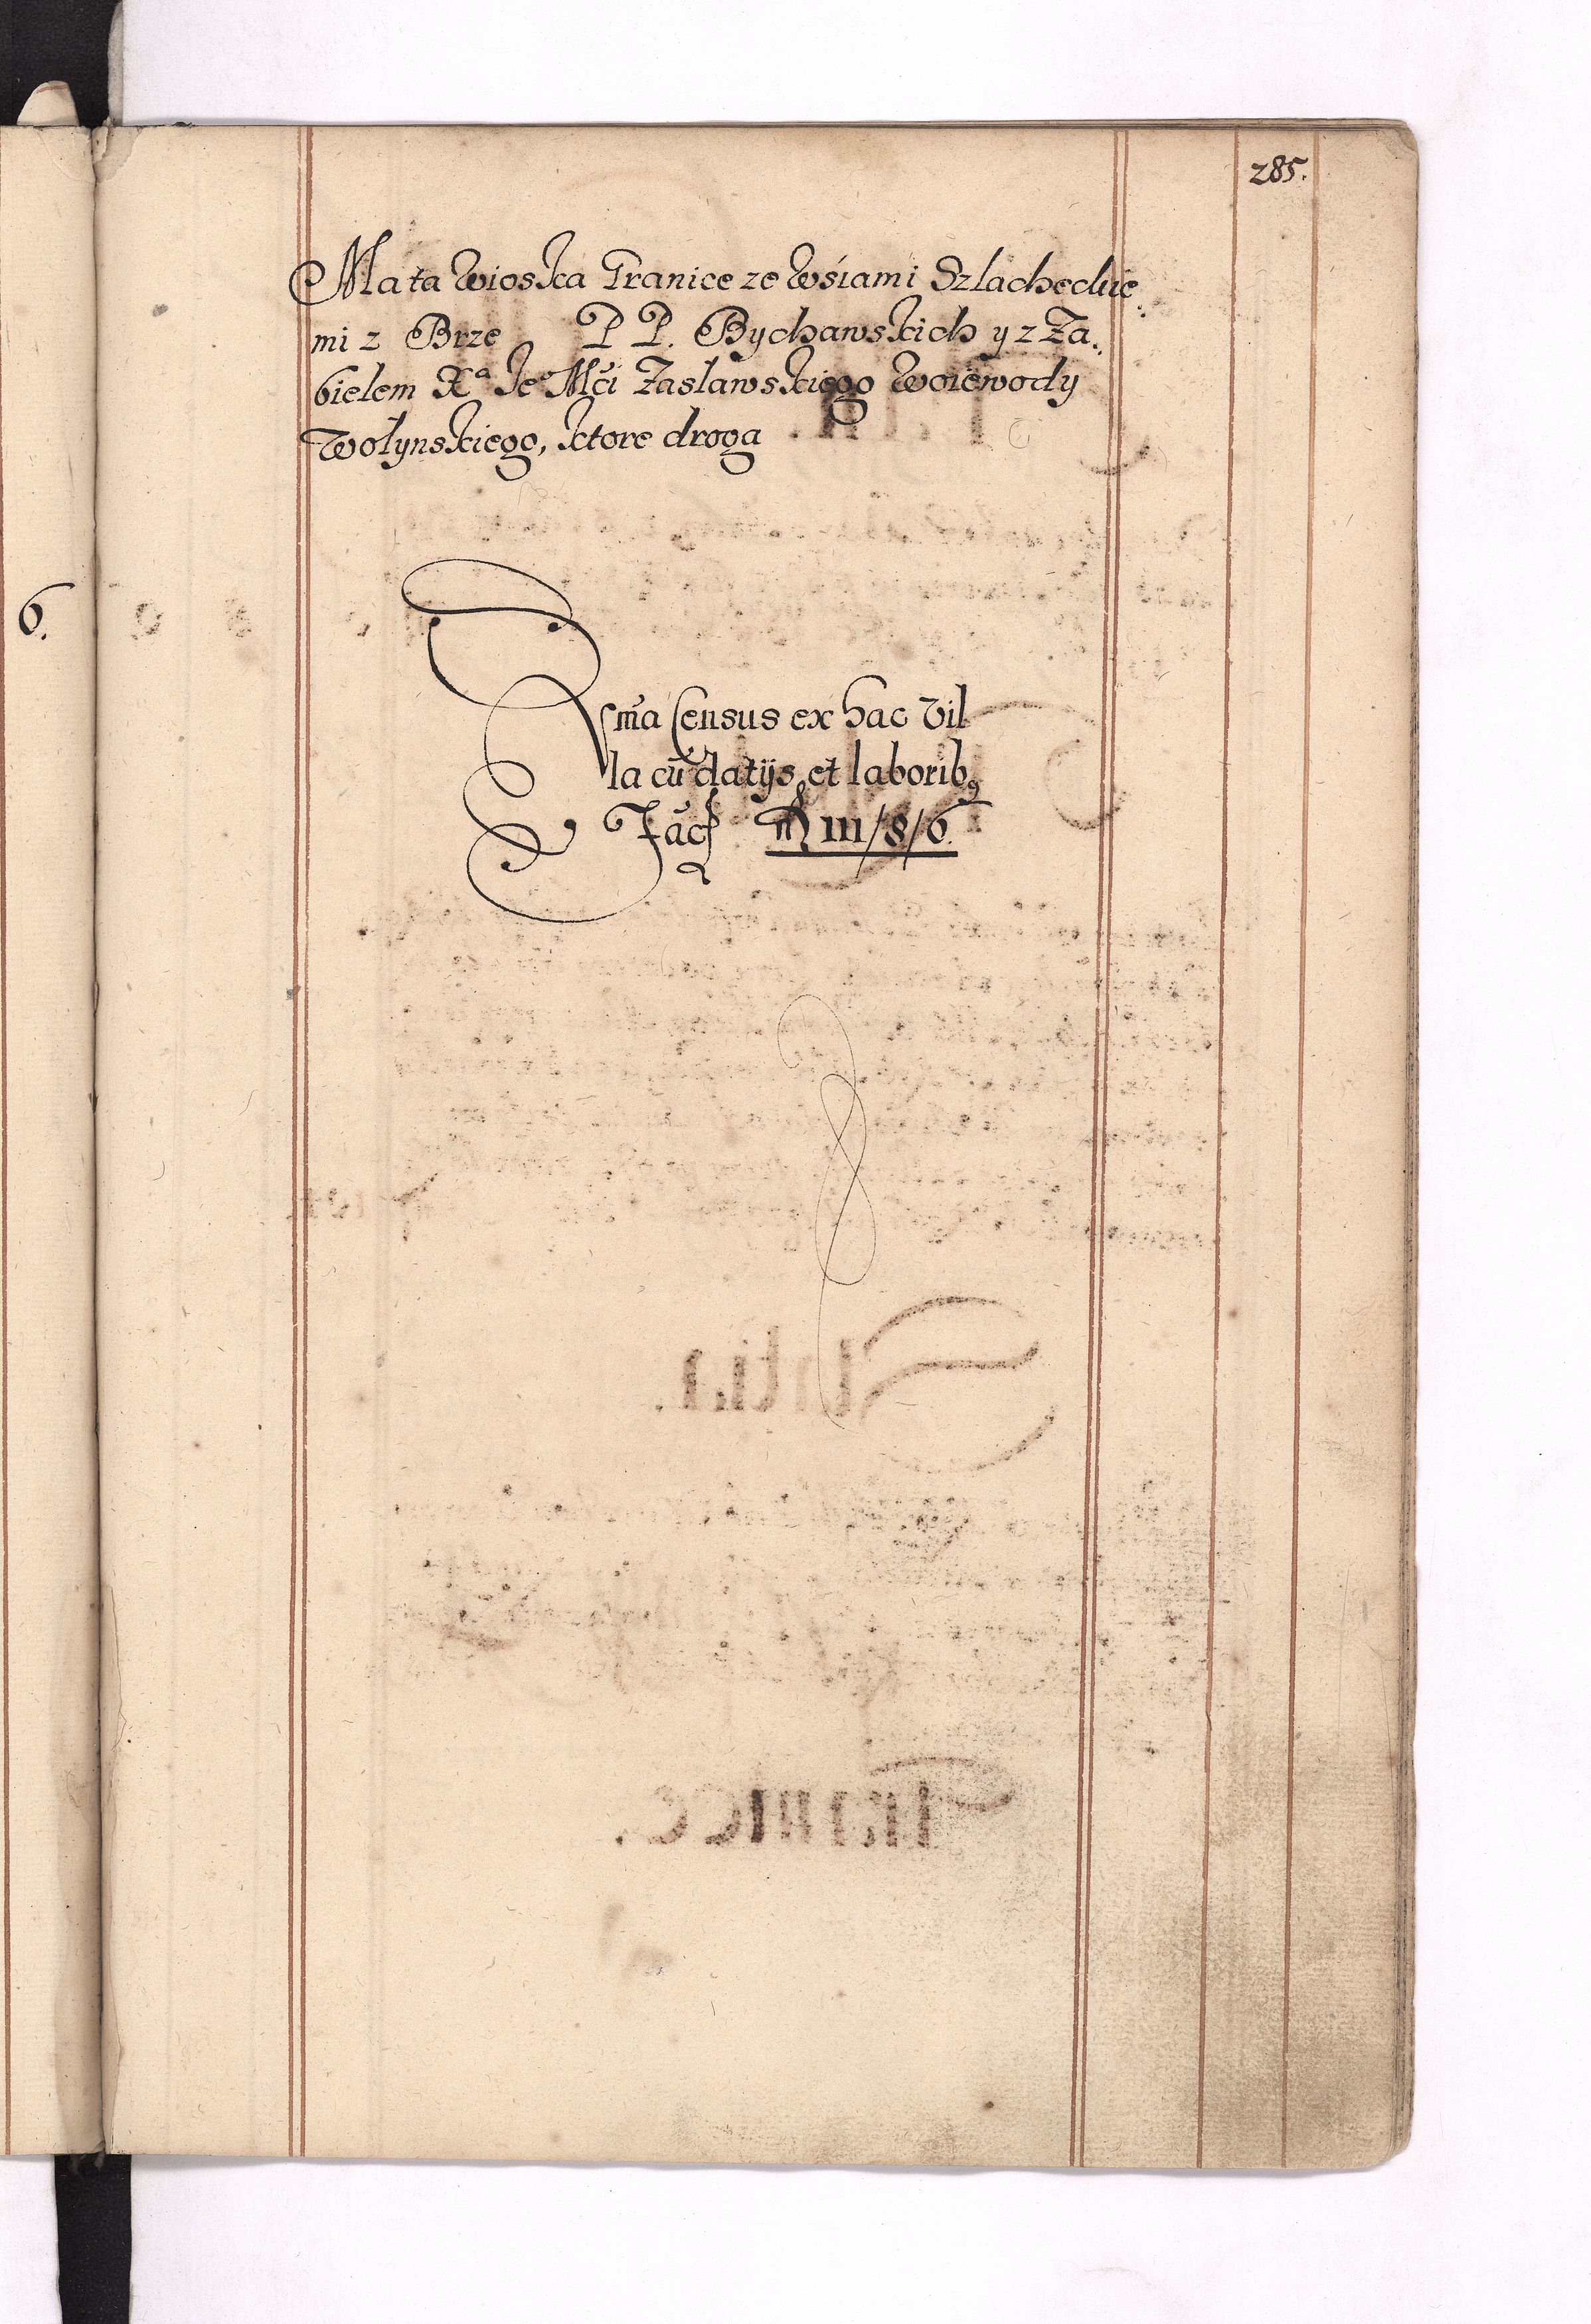 285.
Ma ta Wioska Granice ze Wśiami Szlacheckie
mi z Brze P P. Bychawskich y z Za.
bielem Xa Je Mći Zaslawskiego Woiewody
Wołynskiego, ktore droga
6.
Sm̃a Census ex hac Vil
la cũ datijs et laborib9
fac̃
III/8/6.